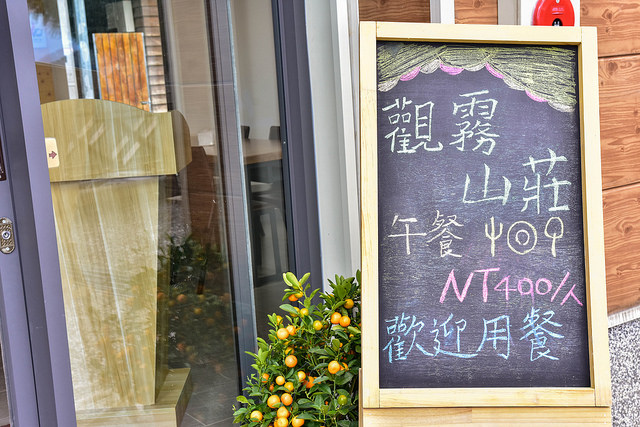 觀霧
山莊
午餐
NT400/人
歡迎用餐